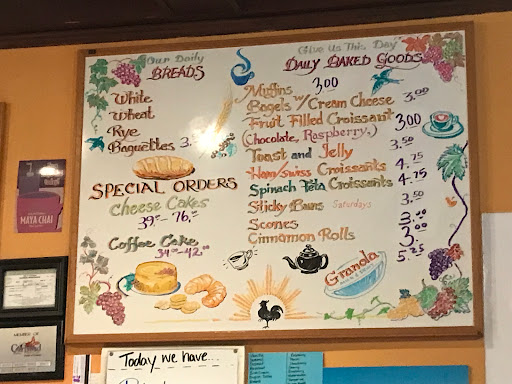 Our Daily
BREADS
White
Wheat
Rye
Baguettes 3.
SPECIAL ORDERS
Cheese Cakes
39.- 76.
Coffee Cake
34.00-42.00
Give Us This Day
DAILY BAKED GOODS
Muffins 3.00
Bagels w/Cream Cheese 3.00
Fruit Filled Croissant
(Chocolate, Raspberry,) 3.00
Toast and Jelly 3.50
Ham/Swiss Croissants 4.75
Spinach Feta Croissants 4.75
Sticky Buns Saturdays 3.50
Scones
Cinnamon Rolls
5.25
Granola
MAYA CHAI
MEMBER OF
Today we have...